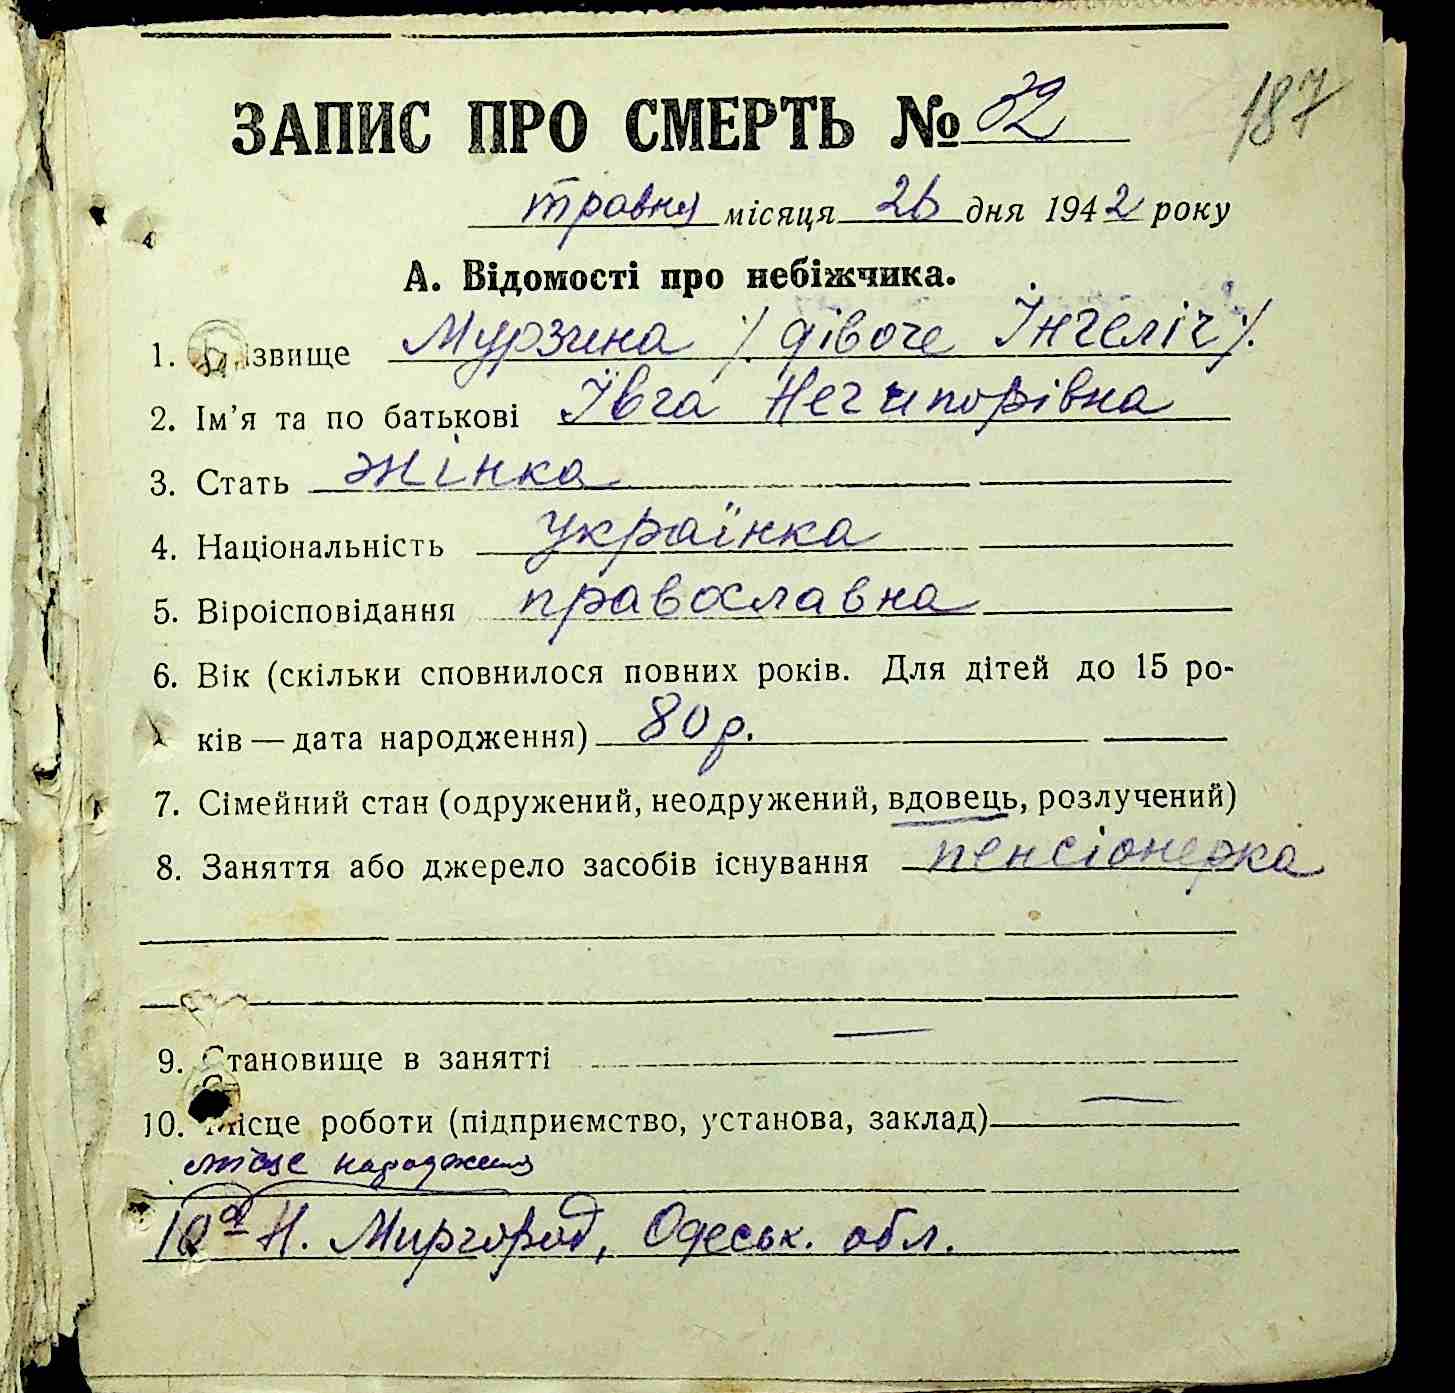 187
ЗАПИС ПРО СМЕРТЬ № 32
травня місяця 26 дня 1942 року
А. Відомості про небіжчика.
1. Прізвище Мурзина /. дівоче Інгеліч /.
2. Ім'я та по батькові Ївга Нечипорівна
3. Стать жінка
4. Національність українка
5. Віроісповідання православна
6. Вік (скільки сповнилося повних років. Для дітей до 15 ро-
ків — дата народження) 80 р.
7. Сімейний стан (одружений, неодружений, вдовець, розлучений)
8. Заняття або джерело засобів існування пенсіонерка
9. Становище в занятті —
10. Місце роботи (підприємство, установа, заклад) —
місце народження
10а Н. Миргород, Одеськ. обл.